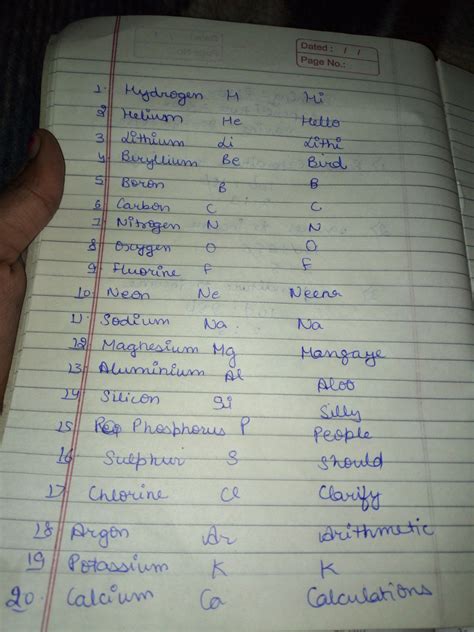 Dated : / /
Page No.:
1. Hydrogen H Hi
2 Helium He Hello
3 Lithium Li Lithi
4 Beryllium Be Bird
5 Boron B B
6 Carbon C C
7 Nitrogen N N
8 Oxygen O O
9. Fluorine F F
10. Neon Ne Neena
11. Sodium Na. Na
12 Magnesium Mg Mangaye
13. Aluminium Al Aloo
14 Silicon Si Silly
15 Phosphorus P People
16 Sulphur S Should
17 Chlorine Cl Clarify
18 Argon Ar Arithmetic
19 Potassium K K
20. Calcium Ca Calculations